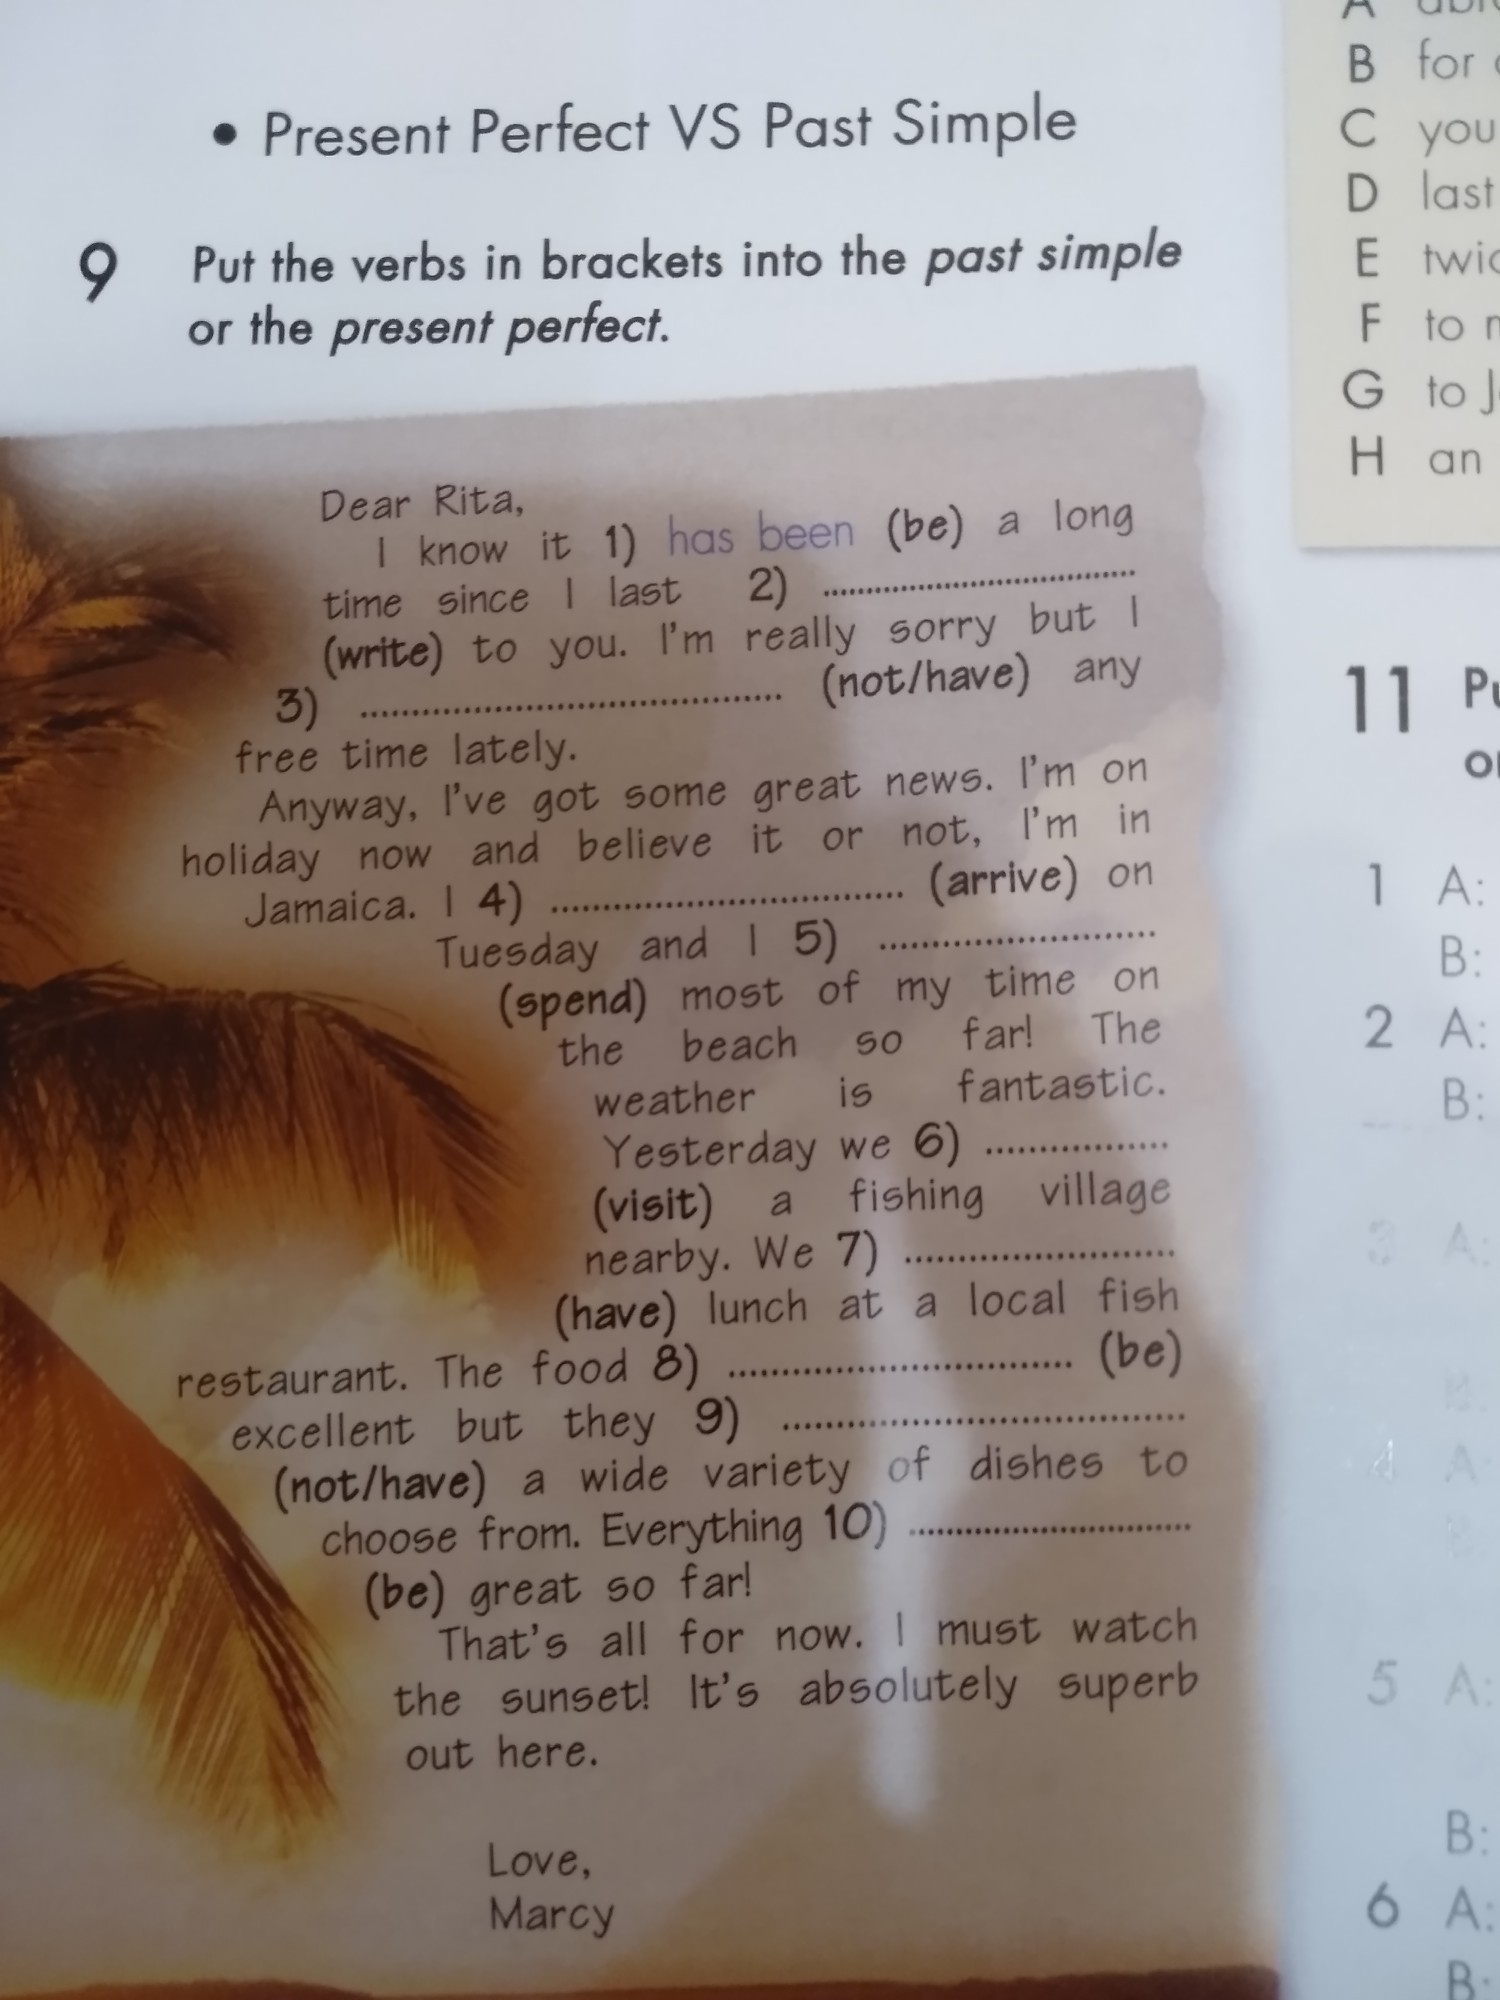 • Present Perfect VS Past Simple
9 Put the verbs in brackets into the past simple
or the present perfect.
Dear Rita,
I know it 1) has been (be) a long
time since I last 2) ..............................
(write) to you. I'm really sorry but I
3) .............................. (not/have) any
free time lately.
Anyway, I've got some great news. I'm on
holiday now and believe it or not, I'm in
Jamaica. I 4) .............................. (arrive) on
Tuesday and I 5) ..............................
(spend) most of my time on
the beach so far! The
weather is fantastic.
Yesterday we 6) ..................
(visit) a fishing village
nearby. We 7) ..........................
(have) lunch at a local fish
restaurant. The food 8) .............................. (be)
excellent but they 9) ..............................
(not/have) a wide variety of dishes to
choose from. Everything 10) ..........................
(be) great so far!
That's all for now. I must watch
the sunset! It's absolutely superb
out here.
Love,
Marcy
A
B for
C you
D last
E
F to
G to
H an
11
1 A:
B:
2 A:
B:
3 A:
B:
4 A
B
5 A:
B:
6 A:
B: